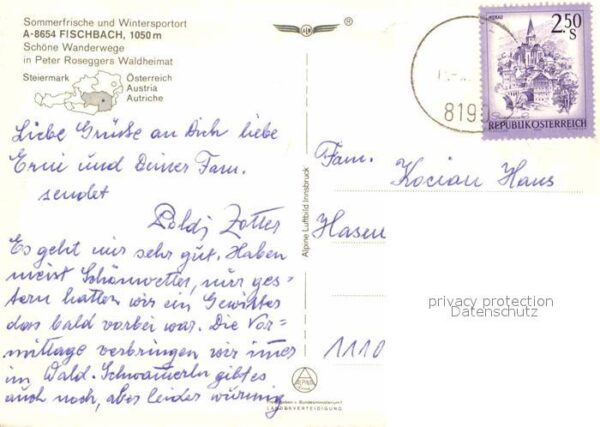 Sommerfrische und Wintersportort
A-8654 FISCHBACH, 1050 m
Schöne Wanderwege
in Peter Roseggers Waldheimat
Steiermark
Österreich
Austria
Autriche
®
MURAU
2.50
S
REPUBLIK ÖSTERREICH
819
Liebe Grüße an Dich liebe
Erni und Deiner Fam.
sendet
Poldi Zotter
Es geht mir sehr gut. Haben
meist Schönwetter, nur ges=
tern hatten wir ein Gewitter
das bald vorbei war. Die Vor=
mittage verbringen wir immer
im Wald. Schwammerln gibt es
auch noch, aber leider wurmig
Alpine Luftbild Innsbruck
Fam. Kocian Hans
Hasen
1110
privacy protection
Datenschutz
ALPINE
Freigegeben v. Bundesministerium f.
LANDESVERTEIDIGUNG